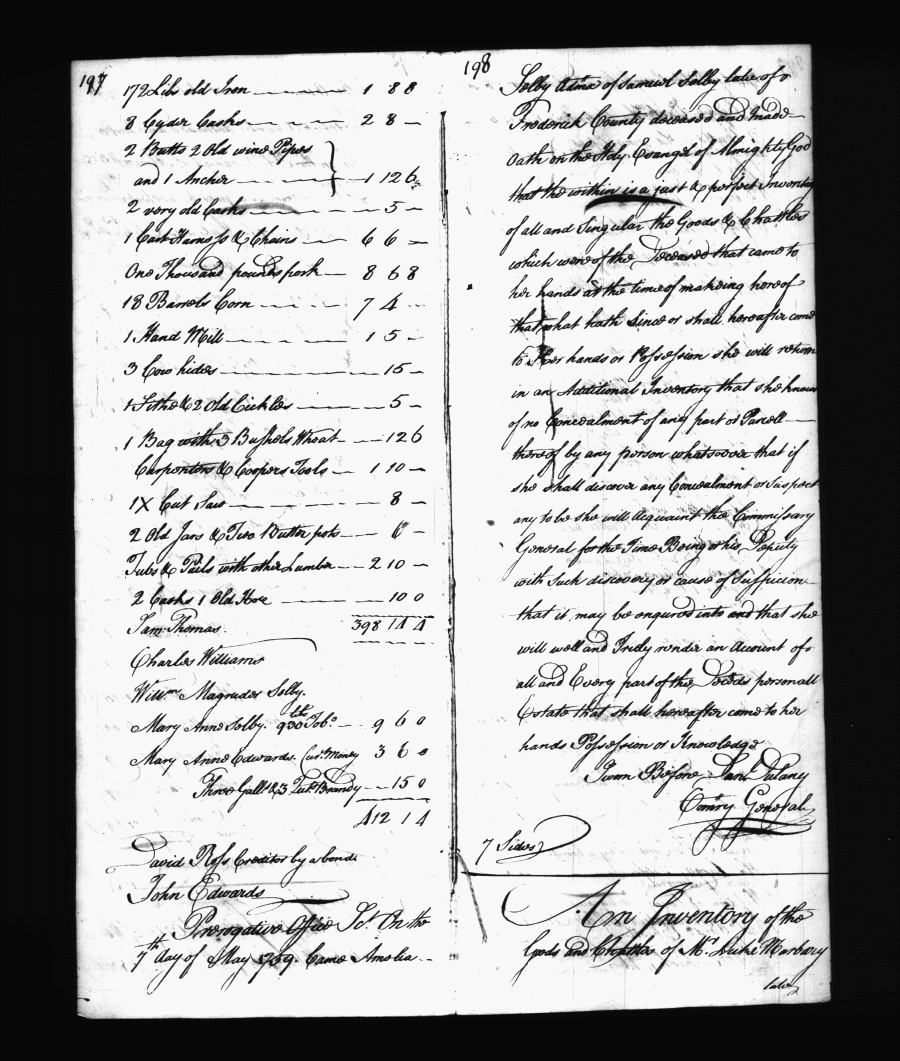 197
172 Libs old Iron 1 8 8
8 Cyder Casks 2 8 -
2 Butts 2 Old wine Pipes
and 1 Ancher 1 12 6
2 very old Casks - 5 -
1 Cart Harness & Chains 6 6 -
One Thousand pounds pork 8 6 8
18 Barrels Corn 7 4 -
1 Hand Mill 1 5 -
3 Cow hides - 15 -
1 Sithe & 2 old Cickles - 5 -
1 Bag with 3 Bushels Wheat - 12 6
Carpenters & Coopers Tools 1 10 -
1 X Cut Saw 8 -
2 Old Jars & Two Butter pots 6 -
Tubs & Pails with other Lumber 2 10 -
2 Casks 1 Old Hoe 10 0
Sam: Thomas. 398 14 4
Charles Williams
Willm Magruder Selby.
Mary Anne Selby. 930 lbs Tobo 9 6 0
Mary Anne Edwards. Curt Money 3 6 0
Three Galls & 3 Brandy - 15 0
412 1 4
David Ross Creditor by a bond
John Edwards
Prerogative Office Sct. On the
7th day of May 1759. Came Amelia
198
Selby Admx of Samuel Selby late of
Frederick County deceased and made
Oath on the Holy Evangel of Almighty God
that the within is a just & perfect Inventory
of all and Singular the Goods & Chattles
which were of the Deceased that came to
her hands at the time of making hereof
that what hath Since or shall hereafter come
to Her hands or Possession she will return
in an Additional Inventory that she knows
of no Concealment of any part or Parcell
thereof by any person whatsoever that if
she shall discover any Concealment or Suspect
any to be she will Acquaint the Commissary
General for the Time Being or his Deputy
with Such discovery or cause of Suspicion
that it may be enquired into and that she
will well and Truly render an Account of
all and Every part of the Deceds personall
Estate that shall hereafter come to her
hands Possession or Knowledge
Sworn Before Danl Dulany
Comry General
7 Sides
An Inventory of the
Goods and Chattles of Mr. Luke Marbury
late